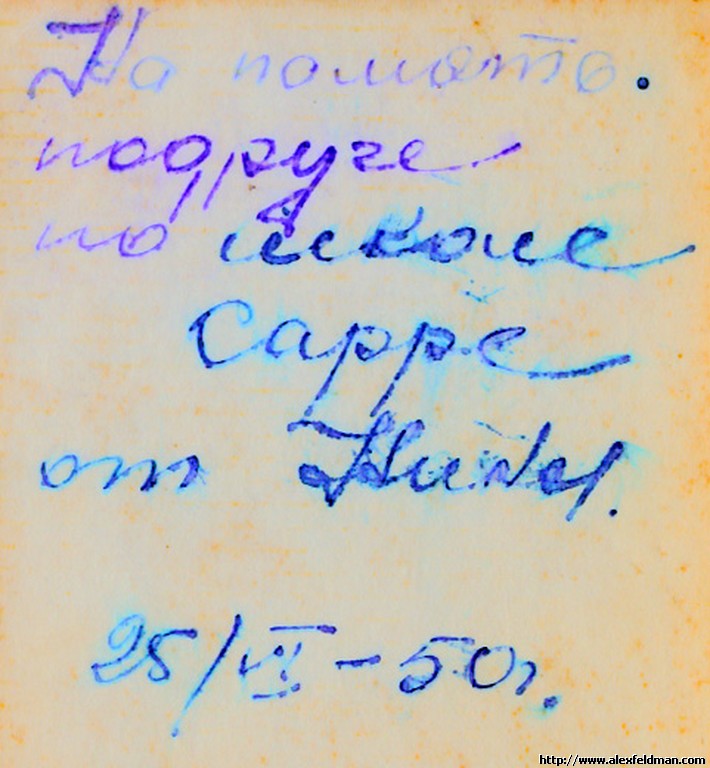 На помять.
подруге
по школе
Сарре
от Нины.
25/VI-50г.
http://www.alexfeldman.com